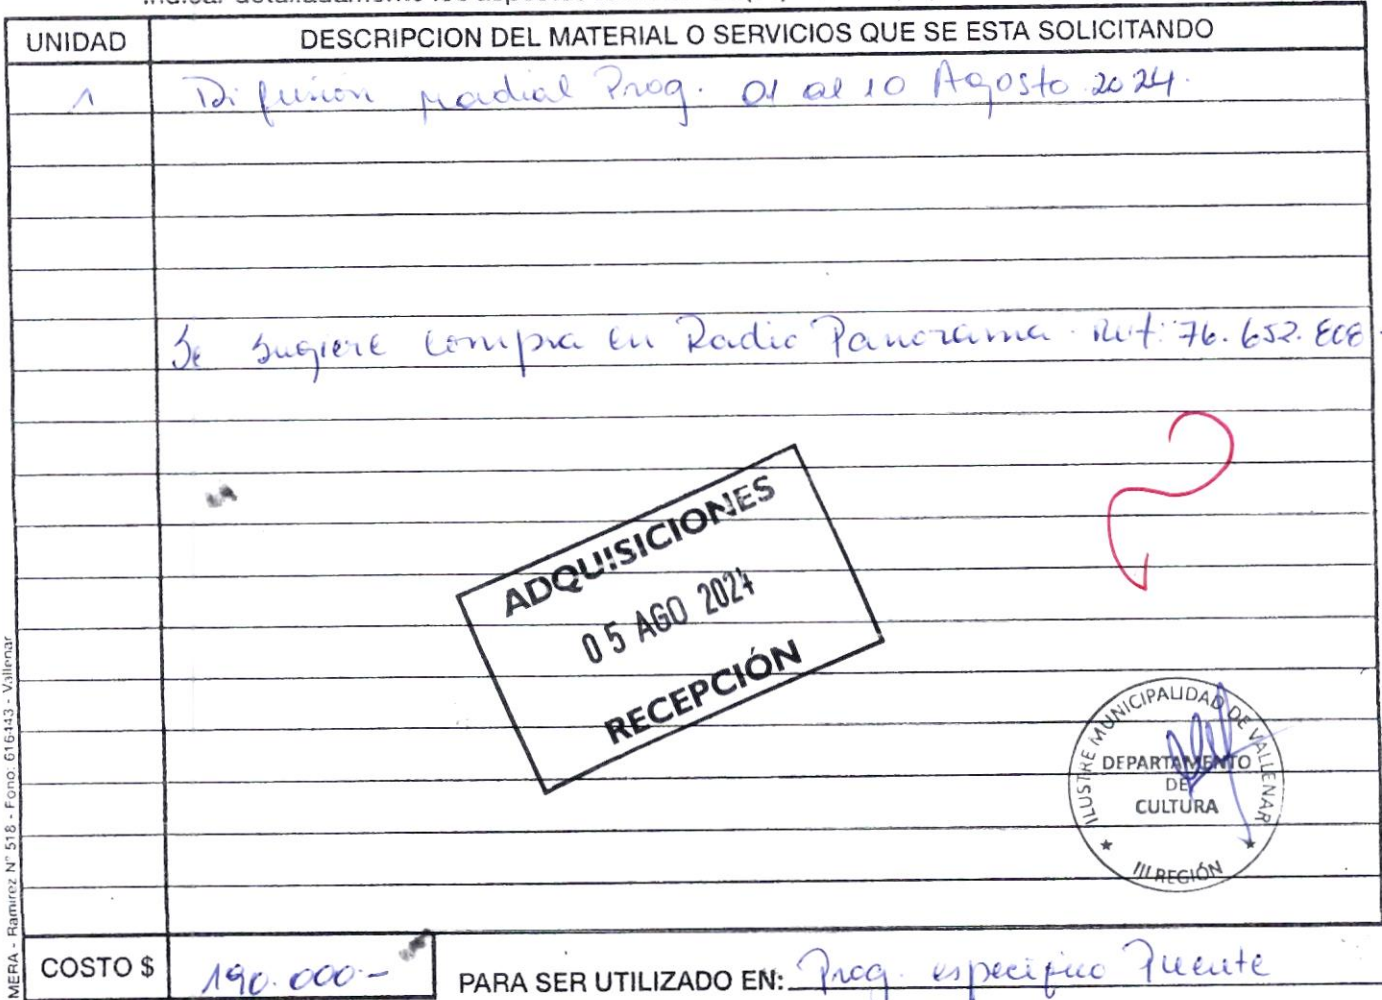 UNIDAD DESCRIPCION DEL MATERIAL O SERVICIOS QUE SE ESTA SOLICITANDO
1 Difusion radial Prog. 01 al 10 Agosto 2024.
Se sugiere compra en Radio Panorama. Rut: 76.652.
ADQUISICIONES
05 AGO 2024
RECEPCIÓN
ILUSTRE MUNICIPALIDAD DE VALLENAR
DEPARTAMENTO
DE
CULTURA
★ III REGIÓN ★
MERA - Ramírez N° 518 - Fono: 616443 - Vallenar
COSTO $ 190.000.- PARA SER UTILIZADO EN: Prog. especifico Puente